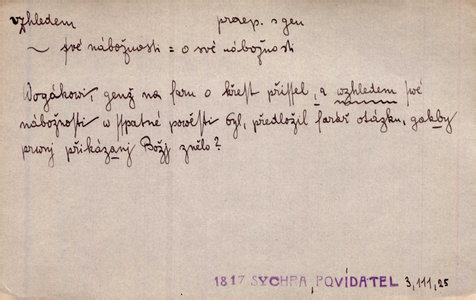 vzhledem praep. s gen
~ své nábožnosti = o své nábožnosti
Wogákowi, genž na faru o křest přissel, a wzhledem své
nábožnosti w sspatné powěsti byl, předložil farář otázku, gakby
prwnj přikázanj Božj znělo?
1817 SYCHRA, POVÍDATEL 3,111,25